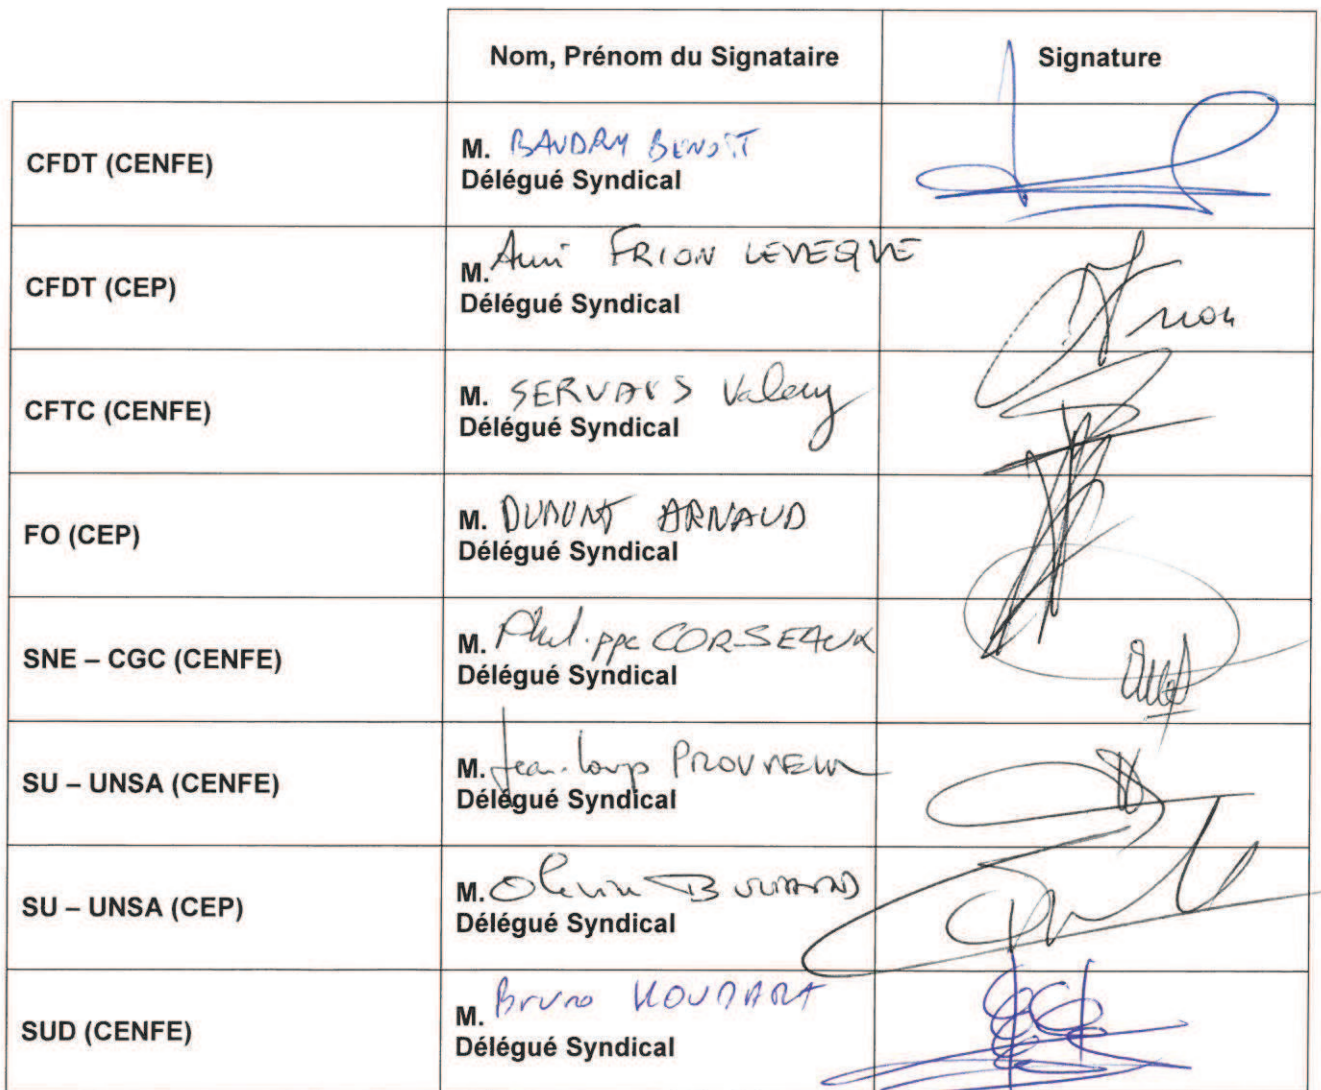 Nom, Prénom du Signataire
Signature
CFDT (CENFE)
M. BAUDRY BENOIT
Délégué Syndical
CFDT (CEP)
M. FRION LEVEQUE
Délégué Syndical
Frion
CFTC (CENFE)
M. SERVAIS Valery
Délégué Syndical
FO (CEP)
M. DUMONT ARNAUD
Délégué Syndical
SNE – CGC (CENFE)
M. Philippe CORSEAUX
Délégué Syndical
SU – UNSA (CENFE)
M. Jean-Loup
Délégué Syndical
SU – UNSA (CEP)
M. Olivier
Délégué Syndical
SUD (CENFE)
M. Bruno
Délégué Syndical